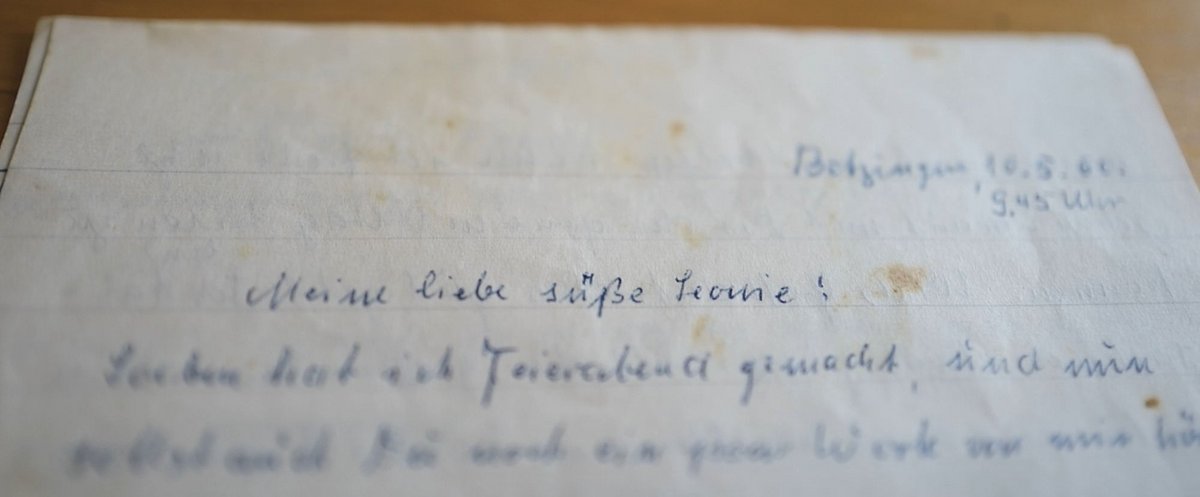 Botzingen, 10.5.60.
9.45 Uhr
Meine liebe süße Leonie!
Soeben hab ich Feierabend gemacht, und nun
sollst auch Du noch ein paar Worte von mir hö